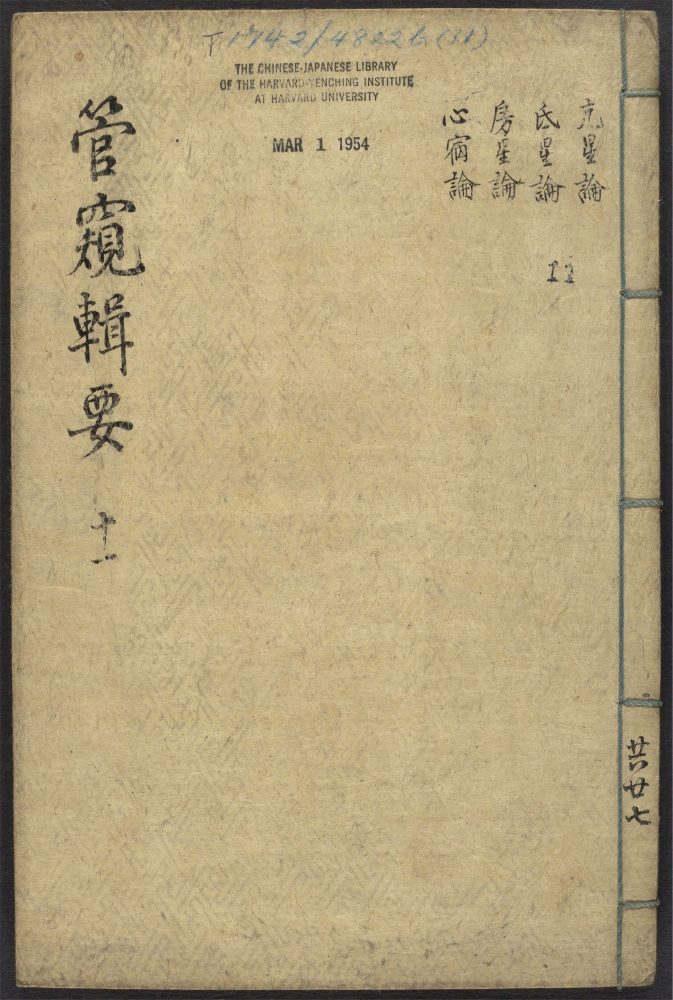 T 1742/4822b(11)
THE CHINESE-JAPANESE LIBRARY
OF THE HARVARD-YENCHING INSTITUTE
AT HARVARD UNIVERSITY
MAR 1 1954
亢星論
氐星論
房星論
心宿論
11
管窺輯要 十一
廿六廿七